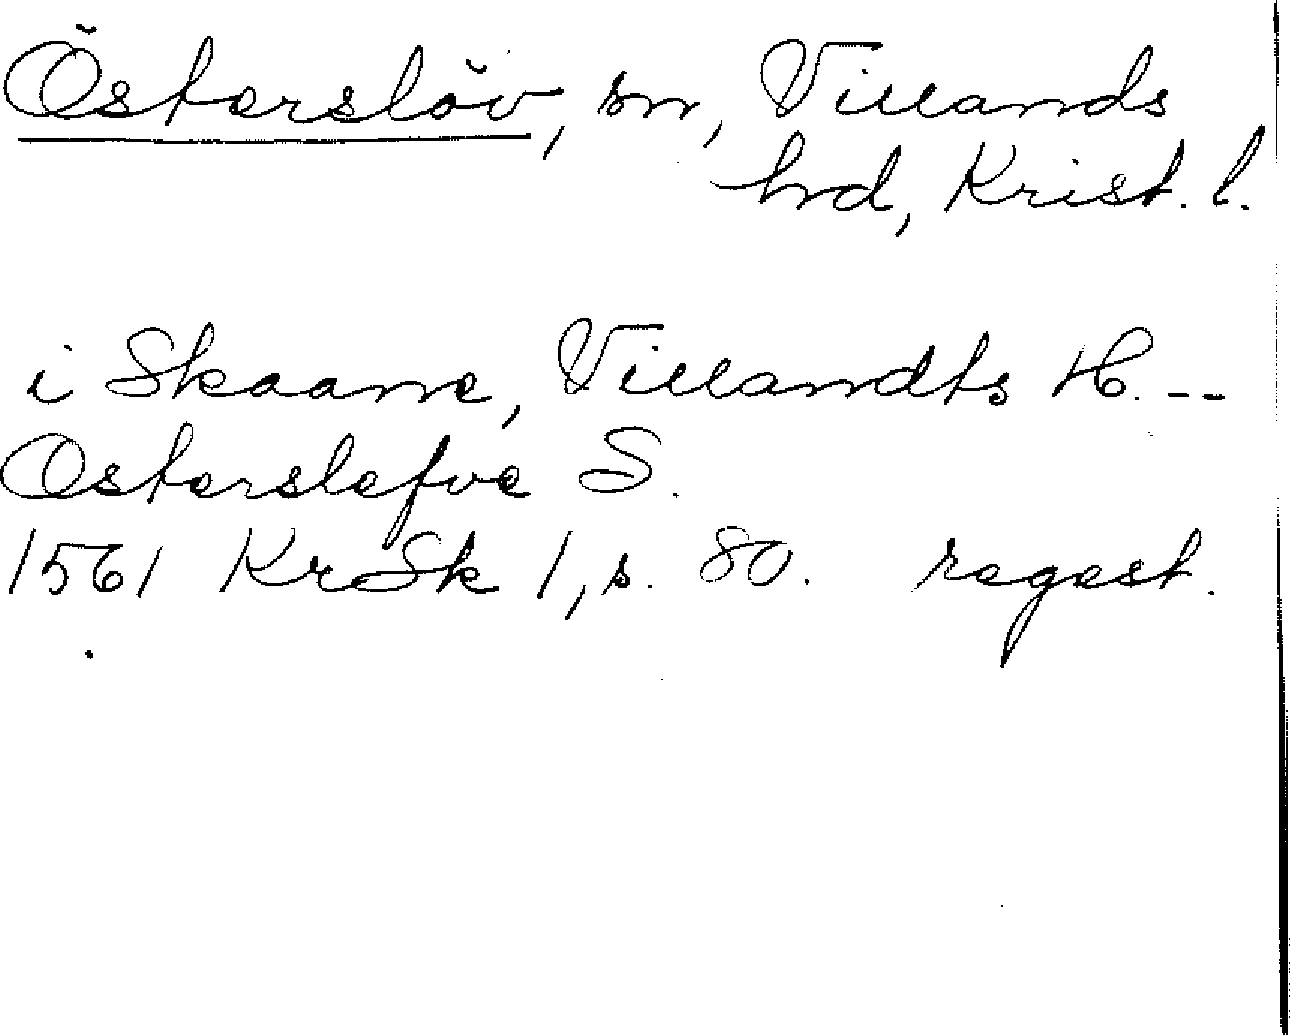 Österslöv, sn, Villands
hrd, Krist. l.
i Skaane, Villandts H. --
Osterslefve S.
1561 KrSk 1, s. 80. regest.